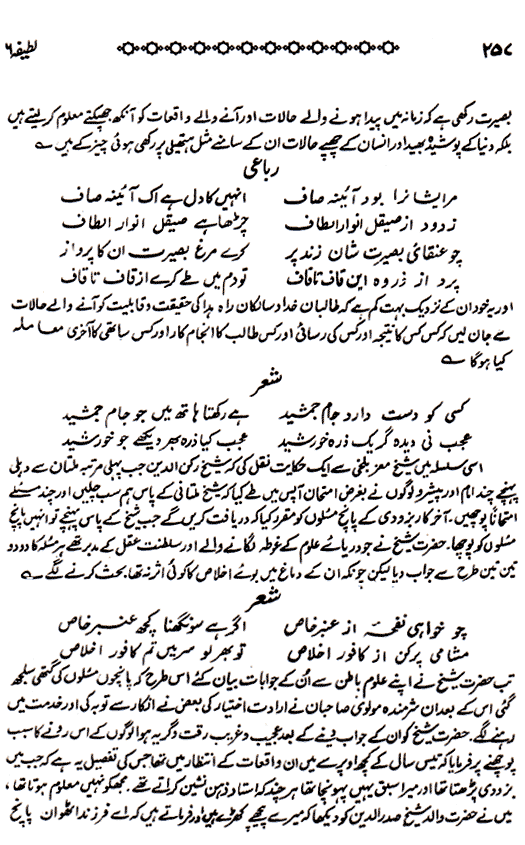 ۲۵۷ لطیفہ ۶
بصیرت رکھی ہے کہ زمانہ میں پیدا ہونے والے حالات اور آنے والے واقعات کو آنکھ جھپکتے معلوم کر لیتے ہیں
بلکہ دنیا کے پوشیدہ بھید اور انسان کے چھپے حالات ان کے سامنے مثل ہتھیلی پر رکھی ہوئی چیز کے ہیں ؎
رباعی
مرایشانرا بود آئینہ صاف انہیں کا دل ہے اک آئینہ صاف
زدود از صیقل انوار الطاف چڑھا ہے صیقل انوار الطاف
چو عنقائے بصیرت شان زند پر کرے مرغ بصیرت ان کا پرواز
پرد از زروہ این قاف تا قاف تو دم میں طے کرے از قاف تا قاف
اور یہ خود ان کے نزدیک بہت کم ہے کہ طالبان خدا و سالکان راہ ہدا کی حقیقت و قابلیت کو آنے والے حالات
سے جان لیں کہ کس کس کا نتیجہ اور کس کی رسائی اور کس طالب کا انجام کار اور کس ساتھی کا آخری معاملہ
کیا ہو گا ؎
شعر
کسی کو دست دارد جام جمشید ہے رکھتا ہاتھ میں جو جام جمشید
عجب نی دیدہ گر یک ذرہ خورشید عجب کیا ذرہ بھر دیکھے جو خورشید
اسی سلسلہ میں شیخ معز بلخی سے ایک حکایت نقل کی کہ شیخ رکن الدین جب پہلی مرتبہ ملتان سے دہلی
پہنچے چند اہم اور پیشرو لوگوں نے بغرض امتحان آپس میں طے کیا کہ شیخ ملتانی کے پاس ہم سب چلیں اور چند مسئلے
امتحاناً پوچھیں۔ آخر کار بزدوی کے پانچ مسئلوں کو مقرر کیا کہ دریافت کریں گے جب شیخ کے پاس پہنچے تو انہیں پانچ
مسئلوں کو پوچھا۔ حضرت شیخ نے جو دریائے علوم کے غوطہ لگانے والے اور سلطنت عقل کے مدبر تھے ہر مسئلہ کا دو دو
تین تین طرح سے جواب دیا لیکن چونکہ ان کے دماغ میں بوئے اخلاص کا کوئی اثر نہ تھا، بحث کرنے لگے ؎
شعر
چو خواہی نفحہ از عنبر خاص اگر ہے سونگھنا کچھ عنبر خاص
مشامی پر کن از کافور اخلاص تو بھر لو سر میں تم کافور اخلاص
تب حضرت شیخ نے اپنے علوم باطن سے اُن کے جوابات بیان کئے اس طرح کہ پانچوں مسئلوں کی گتھی سلجھ
گئی اس کے بعد ان شرمندہ مولوی صاحبان نے ارادت اختیار کی بعض نے انکار سے توبہ کی اور خدمت میں
رہنے لگے۔ حضرت شیخ کو ان کے جواب دینے کے بعد عجیب و غریب رقت و گریہ ہوا لوگوں کے اس رونے کا سبب
پوچھنے پر فرمایا کہ تیس سال کے کچھ اوپر سے میں ان واقعات کے انتظار میں تھا جس کی تفصیل یہ ہے کہ جب میں
بزدوی پڑھتا تھا اور میرا سبق یہیں پہونچا تھا ہر چند کہ استاد ذہن نشین کراتے تھے۔ مجھکو نہیں معلوم ہوتا تھا،
میں نے حضرت والد شیخ صدر الدین کو دیکھا کہ میرے پیچھے کھڑے ہیں اور فرماتے ہیں کہ اے فرزند اٹھو ان پانچ